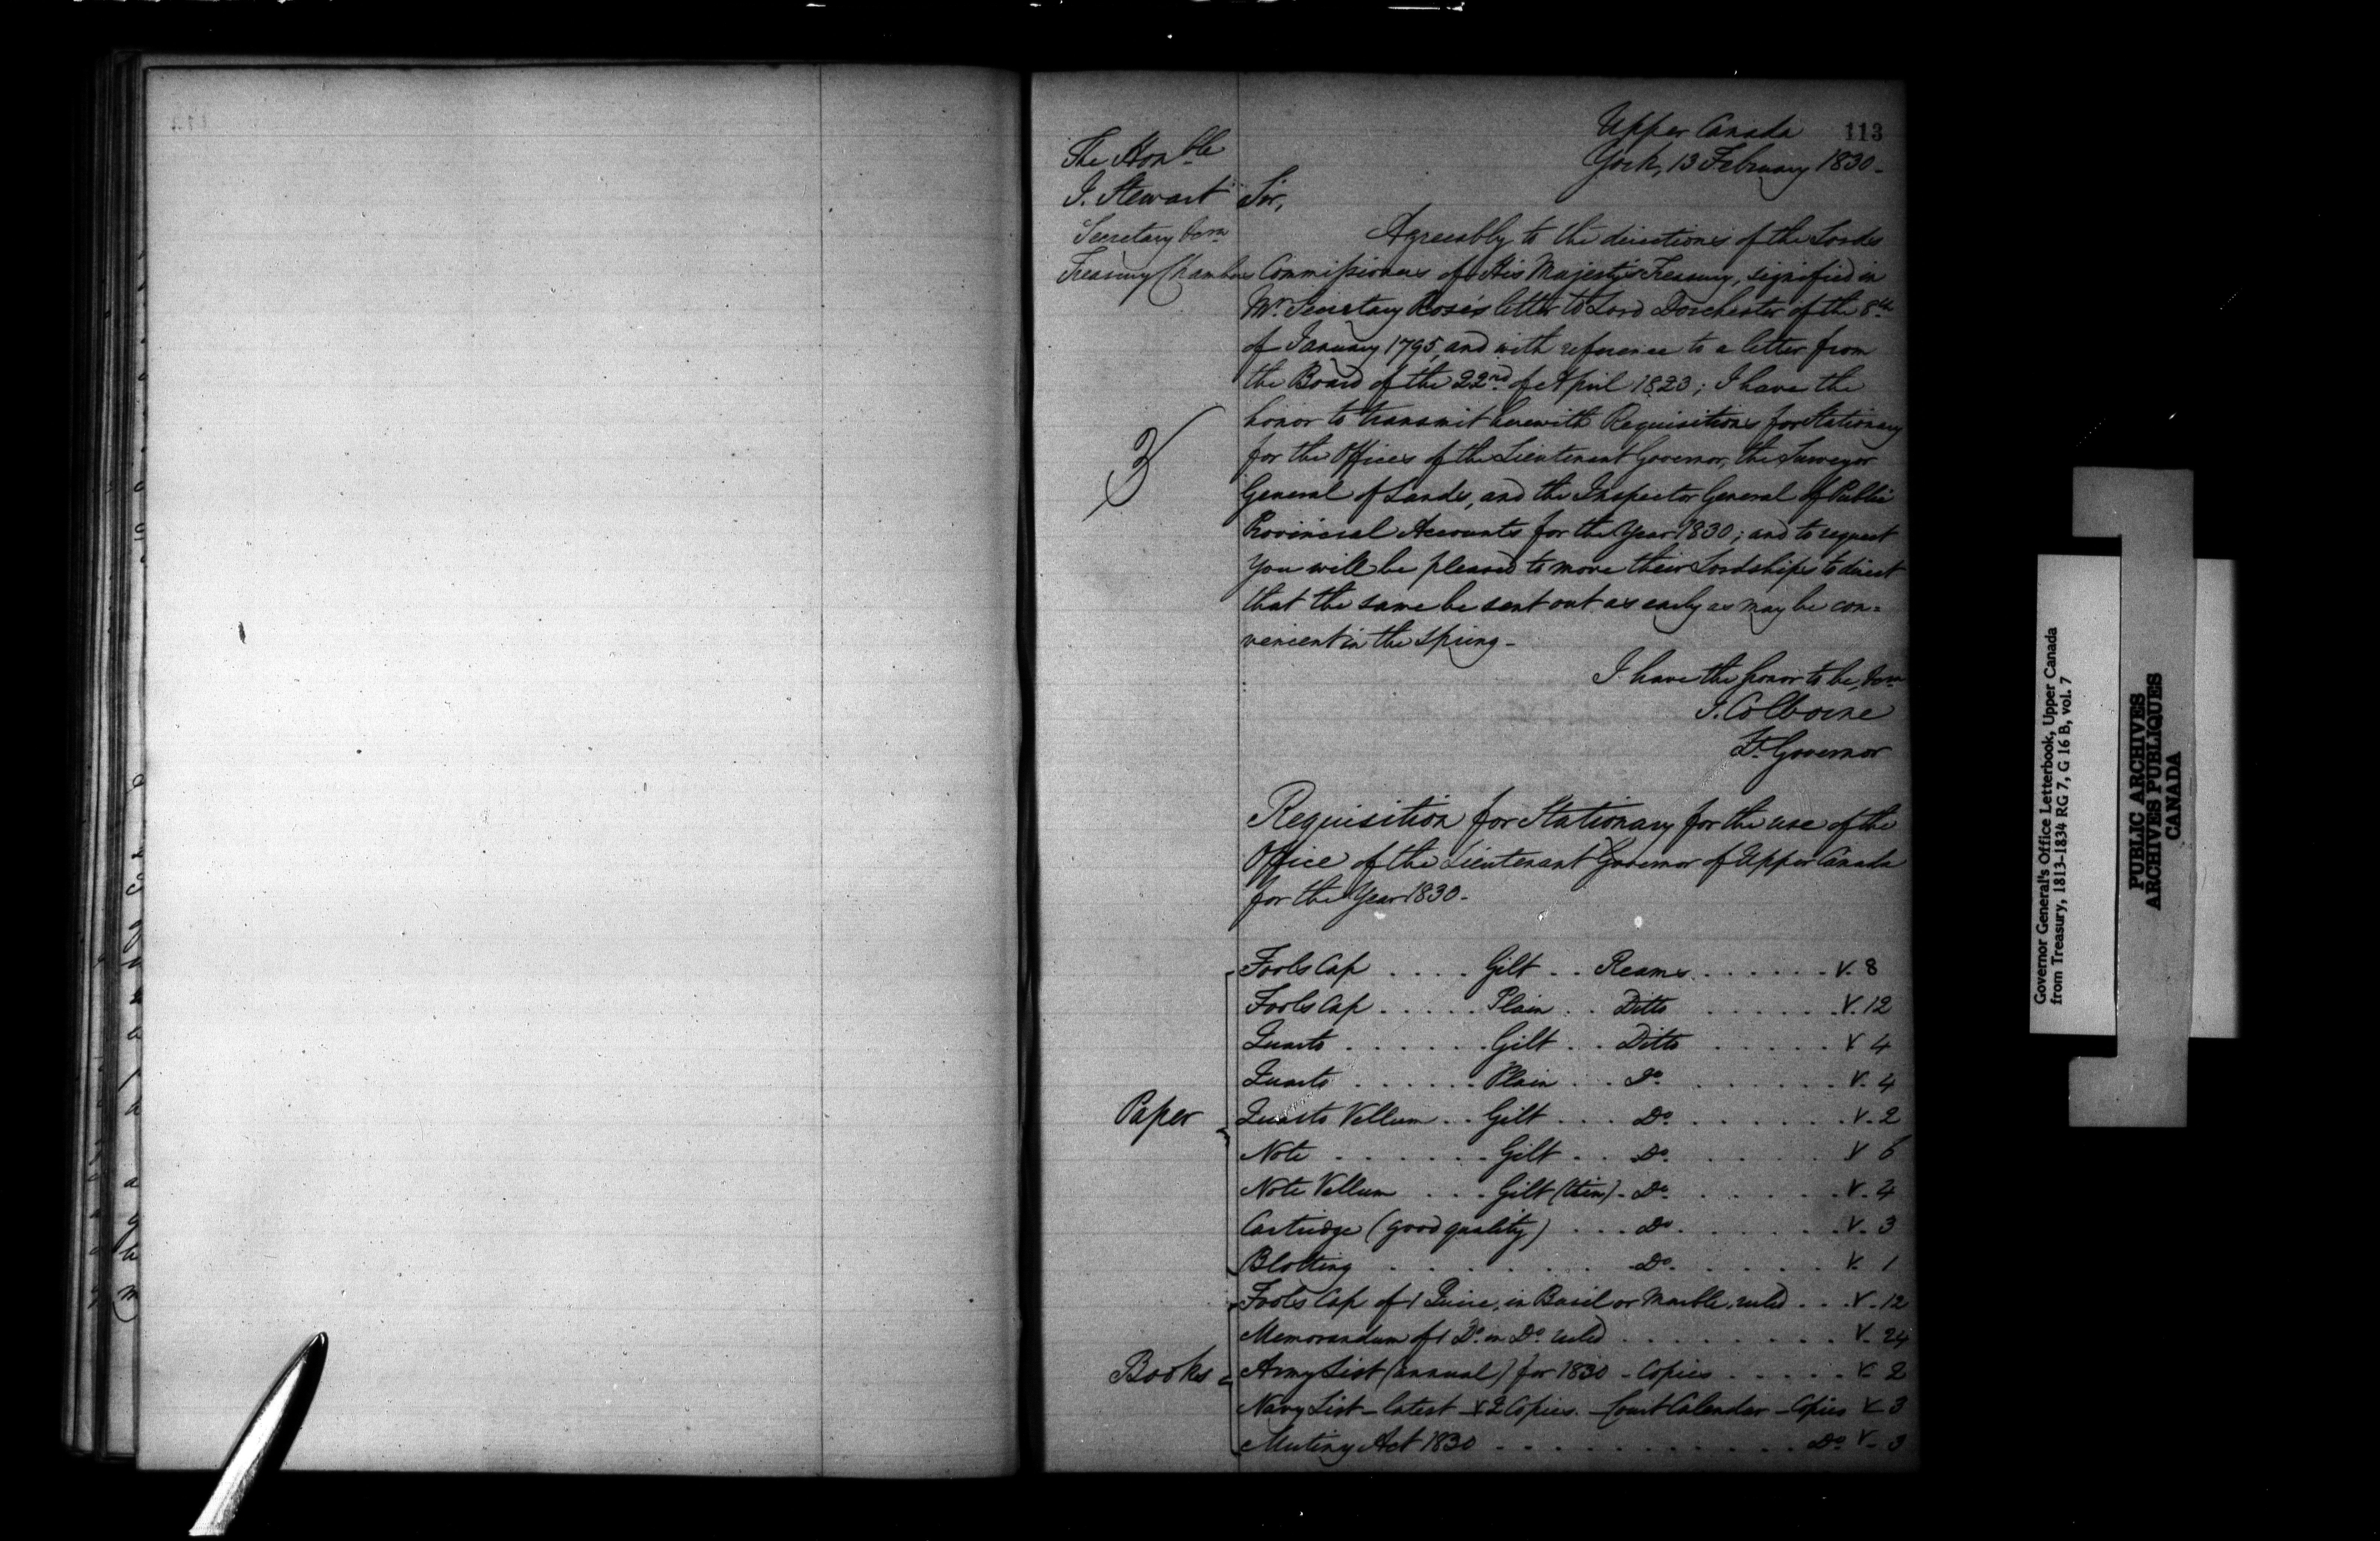 113
Upper Canada
York, 13 February 1830-
The Honble
J. Stewart
Secretary &c
Treasury Chambers
Sir,
Agreeably to the directions of the Lords
Commissioners of His Majesty's Treasury, signified in
Mr. Secretary Rose's letter to Lord Dorchester of the 8th
of January 1795, and with reference to a letter from
the Board of the 22nd of April 1823; I have the
honor to transmit herewith Requisitions for Stationary
for the Offices of the Lieutenant Governor, the Surveyor
General of Lands, and the Inspector General of Public
Provincial Accounts for the Year 1830; and to request
you will be pleased to move their Lordships to direct
that the same be sent out as early as may be con=
venient in the Spring-
3
I have the honor to be, &c
J. Colborne
Lt Governor
Requisition for Stationary for the use of the
Office of the Lieutenant Governor of Upper Canada
for the Year 1830-
Paper
Fools Cap .... Gilt .. Reams ...... V. 8
Fools Cap ..... Plain .. Ditto ...... V. 12
Quarto ...... Gilt ... Ditto ..... V 4
Quarto ...... Plain ... Do. ...... V. 4
Quarto Vellum .. Gilt .... Do. ...... V. 2
Note ...... Gilt .. Do. ..... V 6
Note Vellum ... Gilt (thin) - Do. ...... V. 4
Cartridge (good quality) .... Do. ...... V. 3
Blotting ...... Do. ..... V. 1
Books
Fools Cap of 1 Quire, in Basil or Marble, ruled ... V. 12
Memorandum of 1 Do. in Do. ruled ........ V. 24
Army List (annual) for 1830 - Copies ..... V. 2
Navy List - latest - V 2 Copies. - Court Calendar - Copies V 3
Mutiny Act 1830 ............ Do. V. 3
Governor General's Office Letterbook, Upper Canada
from Treasury, 1813-1834 RG 7, G 16 B, vol. 7
PUBLIC ARCHIVES
ARCHIVES PUBLIQUES
CANADA